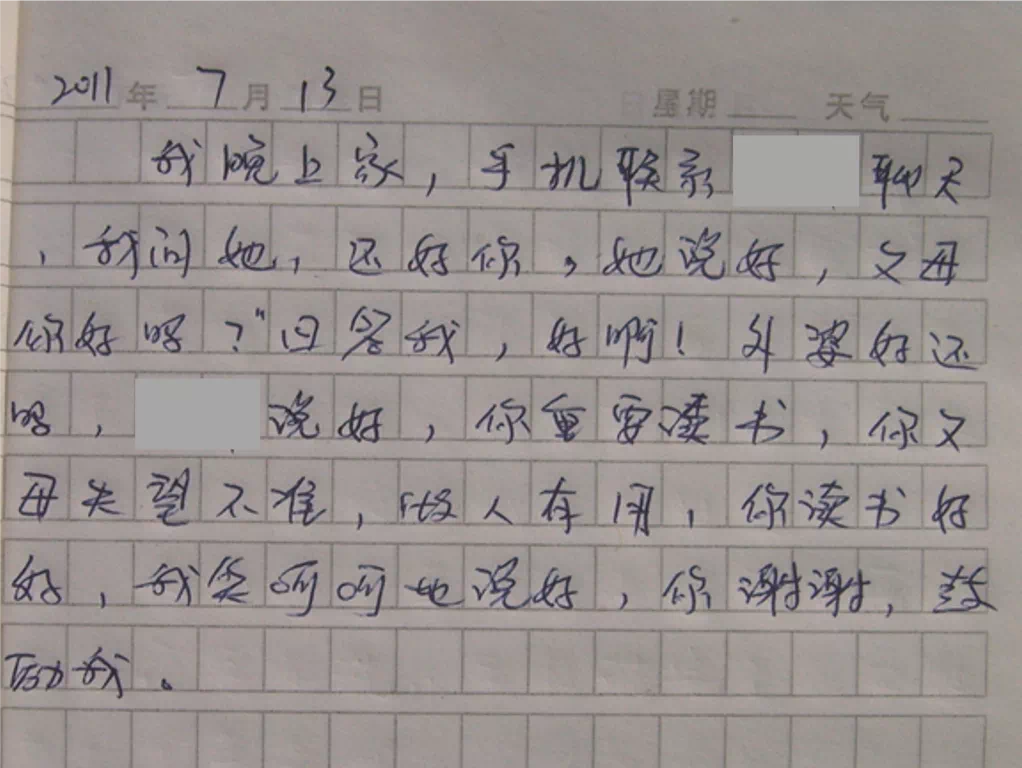 2011年 7月 13日 日星期 天气
我晚上家，手机联系 聊天
，我问她，还好你，她说好，父母
你好吗？"回答我，好啊！外婆好还
吗， 说好，你重要读书，你父
母失望不准，做人有用，你读书好
好，我笑呵呵地说好，你谢谢，鼓
励我。